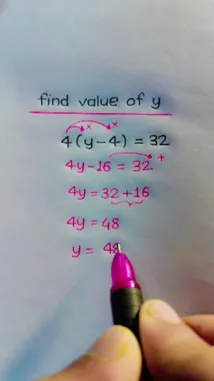 find value of y
4(y-4) = 32
4y-16 = 32
4y = 32+16
4y = 48
y = 48